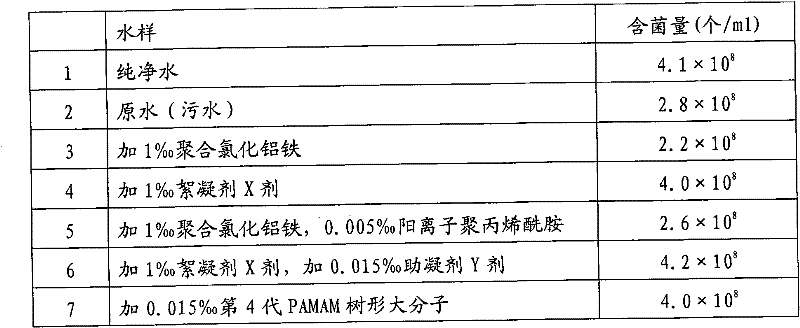 水样 含菌量(个/ml)
1 纯净水 4.1×10⁸
2 原水(污水) 2.8×10⁸
3 加1‰聚合氯化铝铁 2.2×10⁸
4 加1‰絮凝剂X剂 4.0×10⁸
5 加1‰聚合氯化铝铁，0.005‰阳离子聚丙烯酰胺 2.6×10⁸
6 加1‰絮凝剂X剂，加0.015‰助凝剂Y剂 4.2×10⁸
7 加0.015‰第4代PAMAM树形大分子 4.0×10⁸